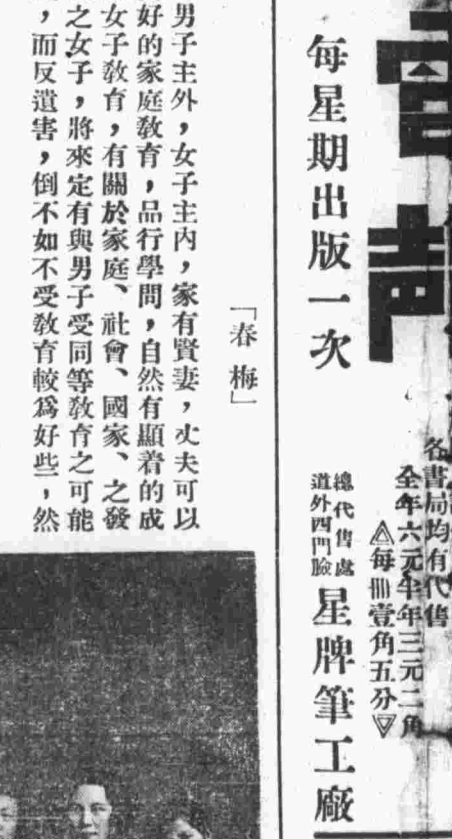 各書局均有代售
全年六元半年三元二角
每冊壹角五分
每星期出版一次
總代售處
道外四門臉
星牌筆工廠
「春梅」
男子主外,女子主內,家有賢妻,丈夫可以
好的家庭敎育,品行學問,自然有顯着的成
女子敎育,有關於家庭、社會、國家、之發
之女子,將來定有與男子受同等敎育之可能
,而反遺害,倒不如不受敎育較爲好些,然